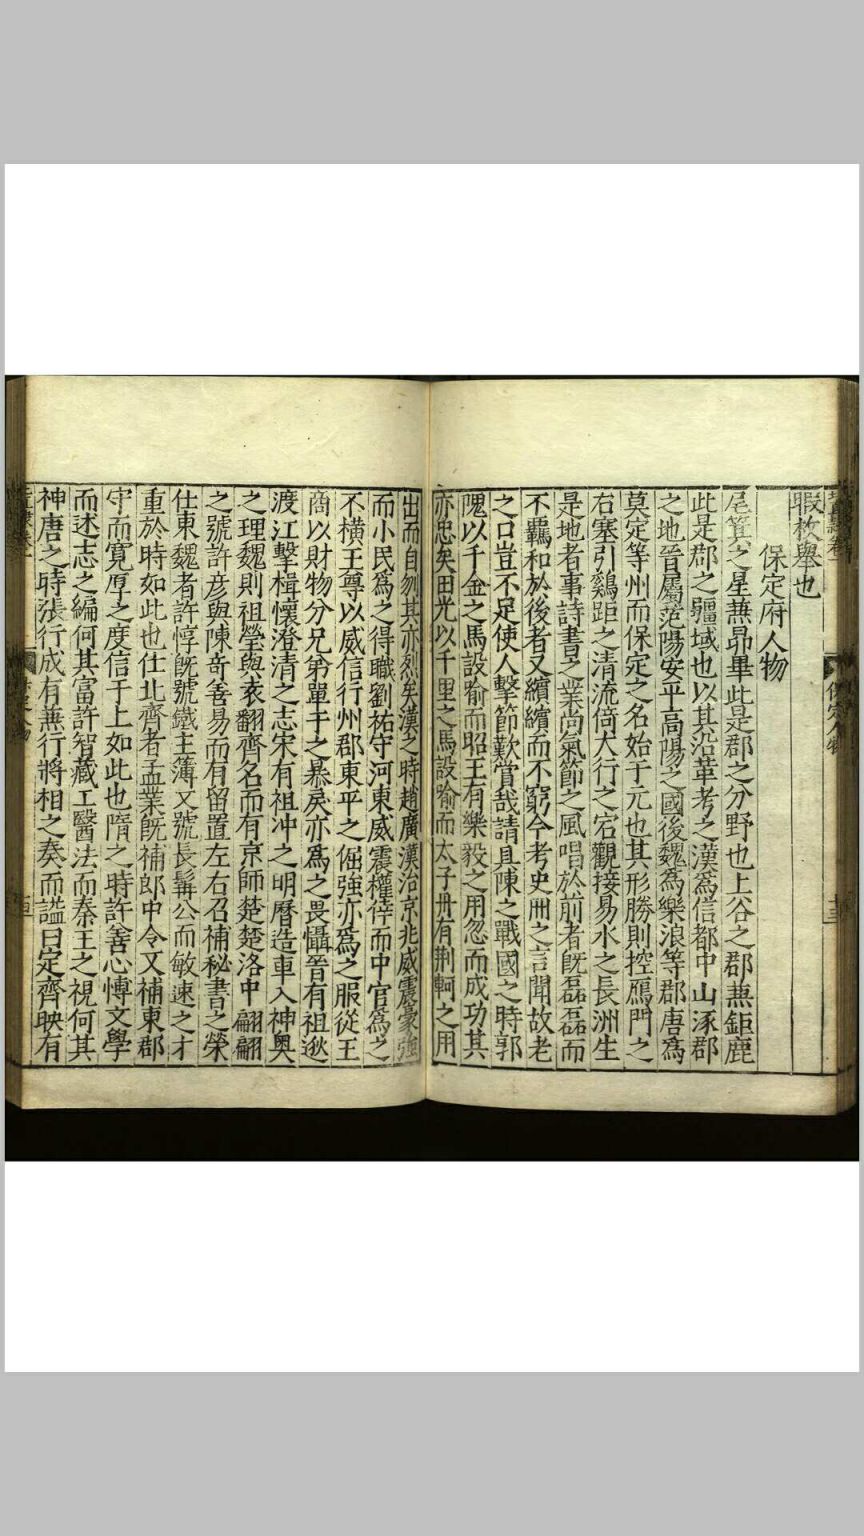 暇枚舉也
保定府人物
尾箕之星蕪昴畢此是郡之分野也上谷之郡蕪鉅鹿
此是郡之疆域也以其沿革考之漢為信都中山涿郡
之地晉屬范陽安平高陽之國後魏為樂浪等郡唐為
莫定等州而保定之名始于元也其形勝則控鴈門之
右塞引鷄距之清流倚大行之宕觀接易水之長洲生
是地者事詩書之業尚氣節之風唱於前者既磊磊而
不羈和於後者又繽繽而不窮今考史冊之言聞故老
之口豈不足使人擊節歎賞哉請且陳之戰國之時郭
隗以千金之馬設喻而昭王有樂毅之用忽而成功其
亦忠矣田光以千里之馬設喻而太子丹有荆軻之用
出而自刎其亦烈矣漢之時趙廣漢治京兆威震豪強
而小民為之得職劉祐守河東威震權倖而中官為之
不橫王尊以威信行州郡東平之倔強亦為之服從王
商以財物分兄弟單于之暴戾亦為之畏懾晉有祖逖
渡江擊楫懷澄清之志宋有祖冲之明曆造車入神奥
之理魏則祖瑩與袁翻齊名而有京師楚楚洛中翩翩
之號許彥與陳奇善易而有留置左右召補秘書之榮
仕東魏者許惇既號鐵主簿又號長髯公而敏速之才
重於時如此也仕北齊者孟業既補郎中令又補東郡
守而寬厚之度信于上如此也隋之時許善心博文學
而述志之編何其富許智藏工醫法而秦王之視何其
神唐之時張行成有蕪行將相之奏而謚曰定齊映有